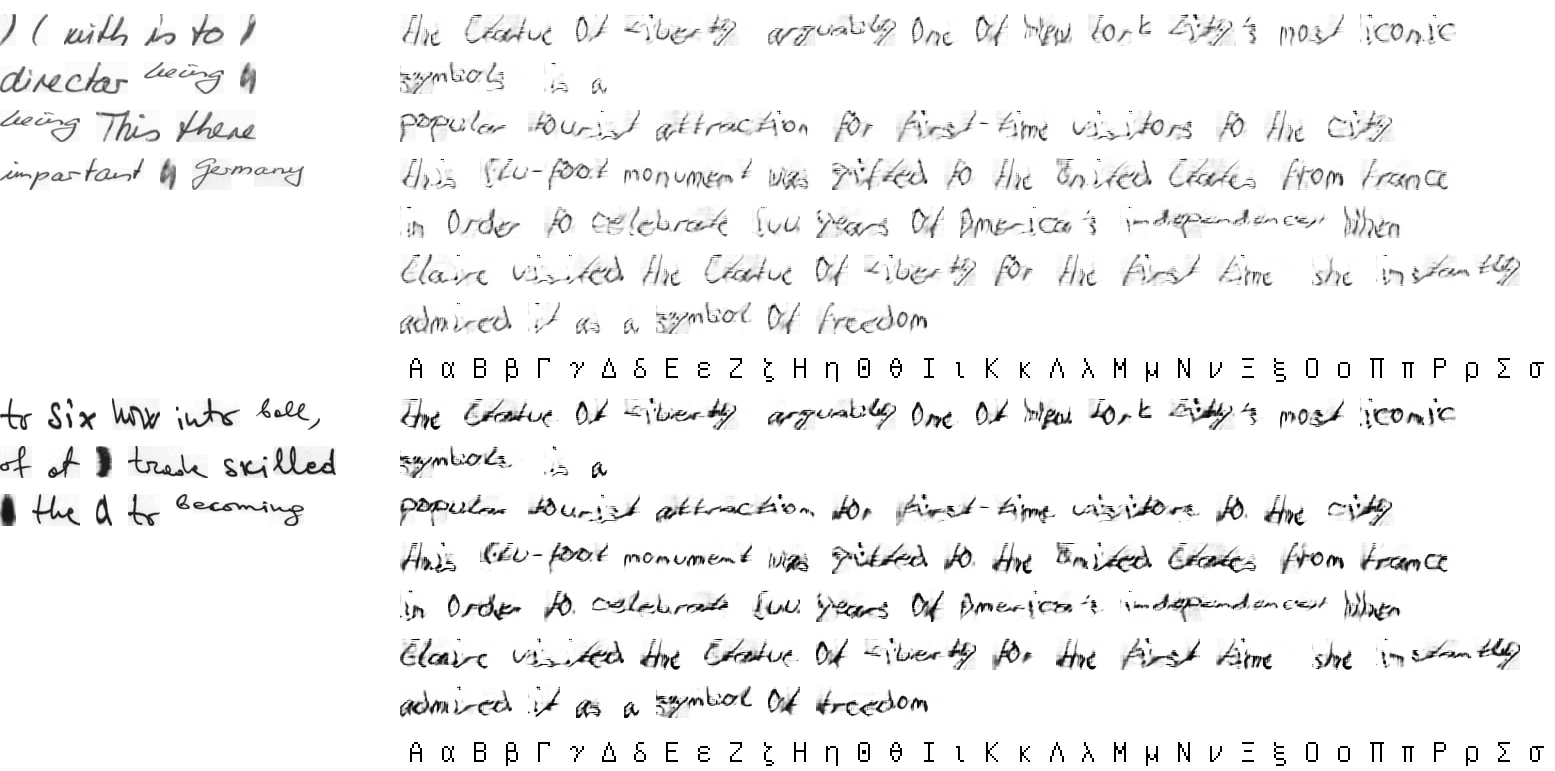 with is to
director being
being This there
important Germany
the Statue Of Liberty arguably One Of New York City's most iconic
symbols is a
popular tourist attraction for first-time visitors to the city
this monument was gifted to the United States from France
in Order to celebrate years Of America's independence When
Claire visited the Statue Of Liberty for the first time she instantly
admired it as a symbol Of freedom
Α α Β β Γ γ Δ δ Ε ε Ζ ζ Η η Θ θ Ι ι Κ κ Λ λ Μ μ Ν ν Ξ ξ Ο ο Π π Ρ ρ Σ σ
to six how into ball,
of at trade skilled
the a to becoming
the Statue Of Liberty arguably One Of New York City's most iconic
symbols is a
popular tourist attraction for first-time visitors to the city
this monument was gifted to the United States from France
in Order to celebrate years Of America's independence When
Claire visited the Statue Of Liberty for the first time she instantly
admired it as a symbol Of freedom
Α α Β β Γ γ Δ δ Ε ε Ζ ζ Η η Θ θ Ι ι Κ κ Λ λ Μ μ Ν ν Ξ ξ Ο ο Π π Ρ ρ Σ σ